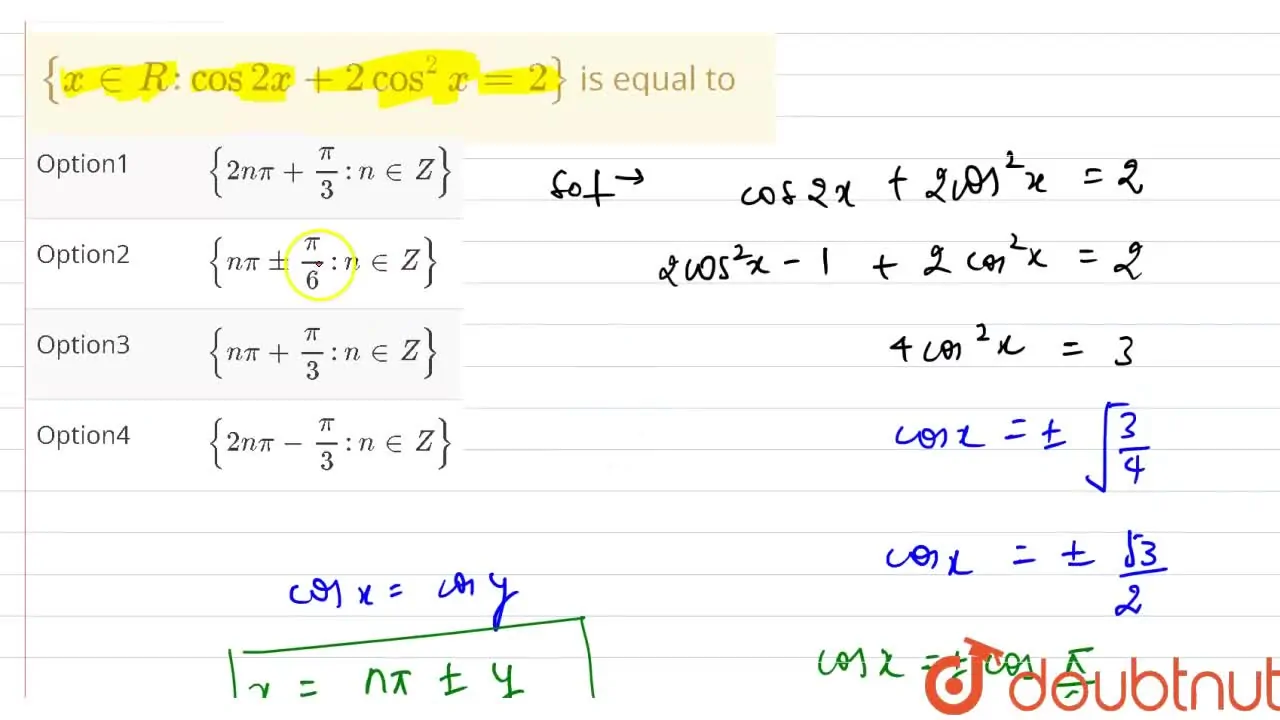 {x ∈ R : cos 2x + 2 cos² x = 2} is equal to
Option1 {2nπ + π/3 : n ∈ Z}
Option2 {nπ ± π/6 : n ∈ Z}
Option3 {nπ + π/3 : n ∈ Z}
Option4 {2nπ − π/3 : n ∈ Z}
Sol → cos2x + 2cos²x = 2
2cos²x − 1 + 2 cos²x = 2
4cos²x = 3
cosx = ± √(3/4)
cosx = ± √3/2
cosx = cosy
x = nπ ± y
cosx = ± cos π
doubtnut